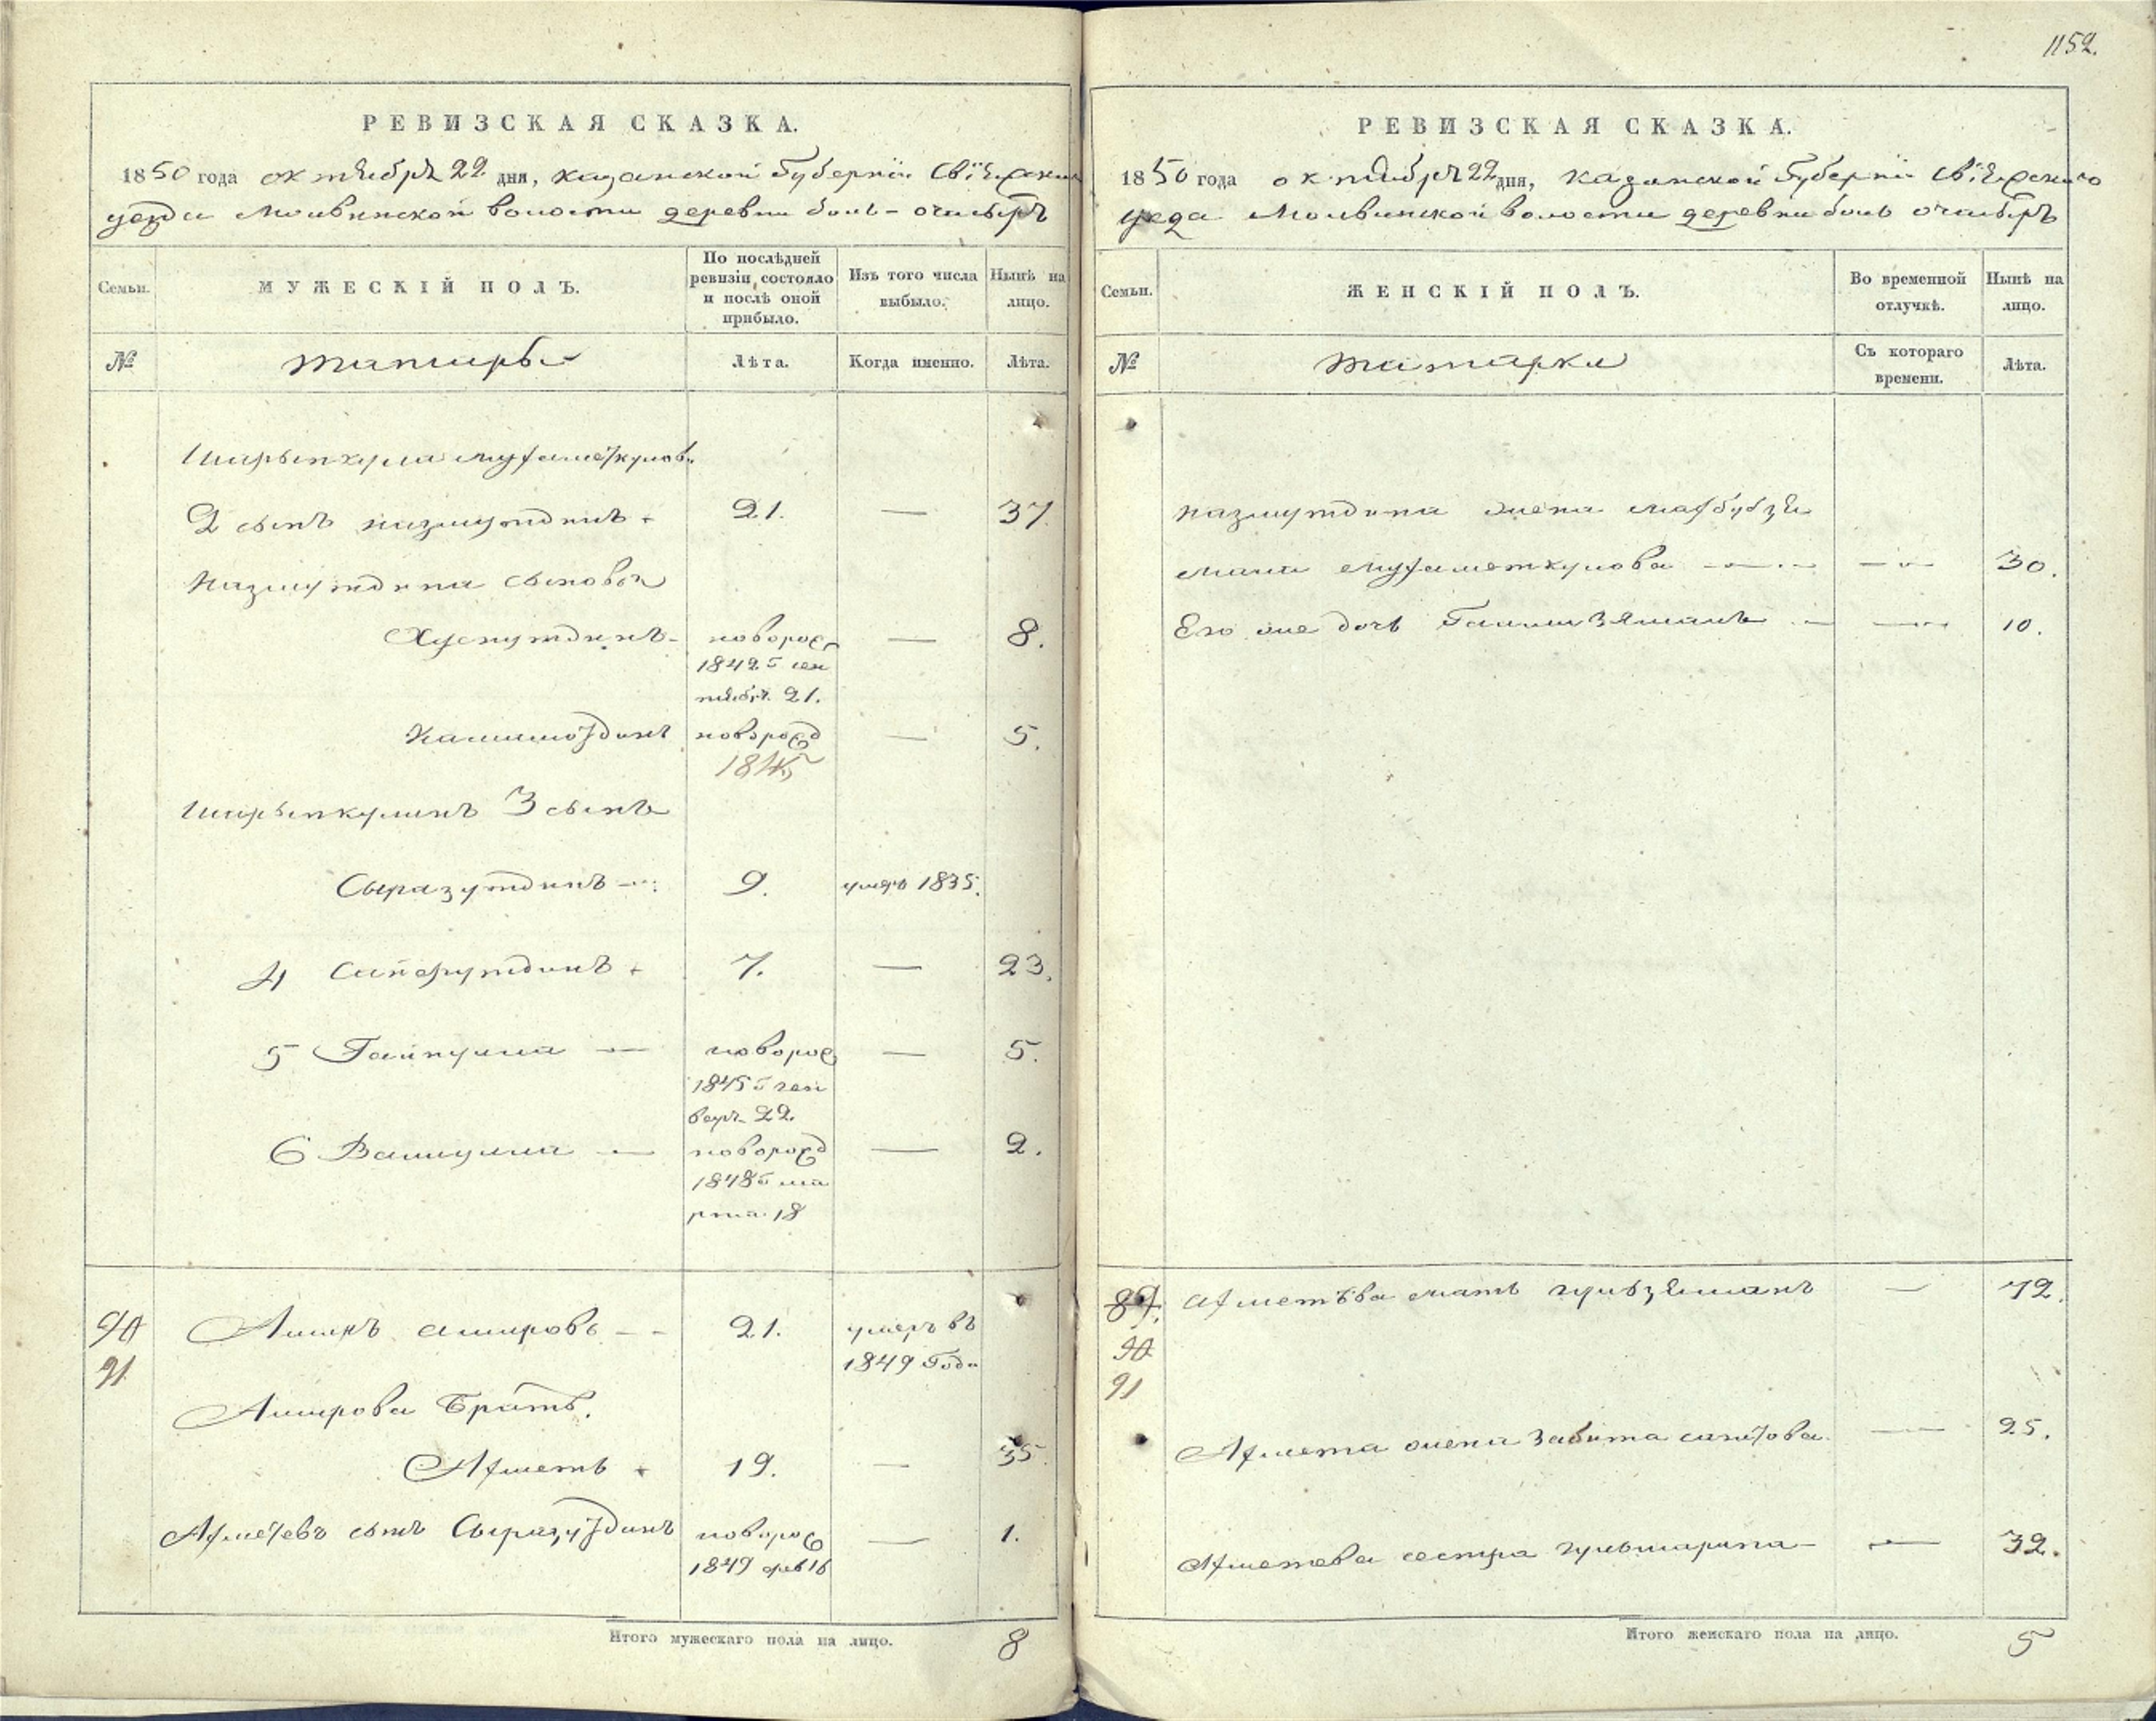 1152.
РЕВИЗСКАЯ СКАЗКА.
1850 года октября 22 дня, казанской Губернїи Свїяжскаго
уезда Молвинской волости деревни боль-очасыръ
Семьи.
МУЖЕСКІЙ ПОЛЪ.
По послѣдней ревизіи состояло и послѣ оной прибыло.
Изъ того числа выбыло.
Нынѣ на лицо.
№
татары
Лѣта.
Когда именно.
Лѣта.
2 сынъ назмутдинъ 21. — 37.
назмутдина сыновья
Хуснутдинъ новорож 1842 г сентября 21. — 8.
новорожд 1845 — 5.
3 сынъ
Сыразутдинъ 9. умеръ 1835.
4 Сайфутдинъ 7. — 23.
5 новорож 1845 г генваря 22 — 5.
6 новорожд 1848 г марта 18 — 2.
90
91
Амиръ амировъ 21. умеръ въ 1849 Году
Амирова братъ.
Ахметъ 19. — 35.
Ахметевъ сынъ Сыразутдинъ новорож 1849 фев 16 — 1.
Итого мужескаго пола на лицо. 8
РЕВИЗСКАЯ СКАЗКА.
1850 года октября 22 дня, казанской Губернїи Свїяжскаго
уезда Молвинской волости деревни боль очасыръ
Семьи.
ЖЕНСКІЙ ПОЛЪ.
Во временной отлучкѣ.
Нынѣ на лицо.
№
татарки
Съ котораго времени.
Лѣта.
назмутдина жена
мухаметкулова — 30.
Его же дочь — 10.
89.
90
91
Ахметѣва мать гульзяманъ — 72.
Ахмета жена — 25.
Ахметева сестра — 32.
Итого женскаго пола на лицо. 5